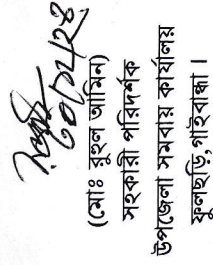 ৩০/১২/২৪
(মোঃ রুহুল আমিন)
সহকারী পরিদর্শক
উপজেলা সমবায় কার্যালয়
ফুলছড়ি, গাইবান্ধা।